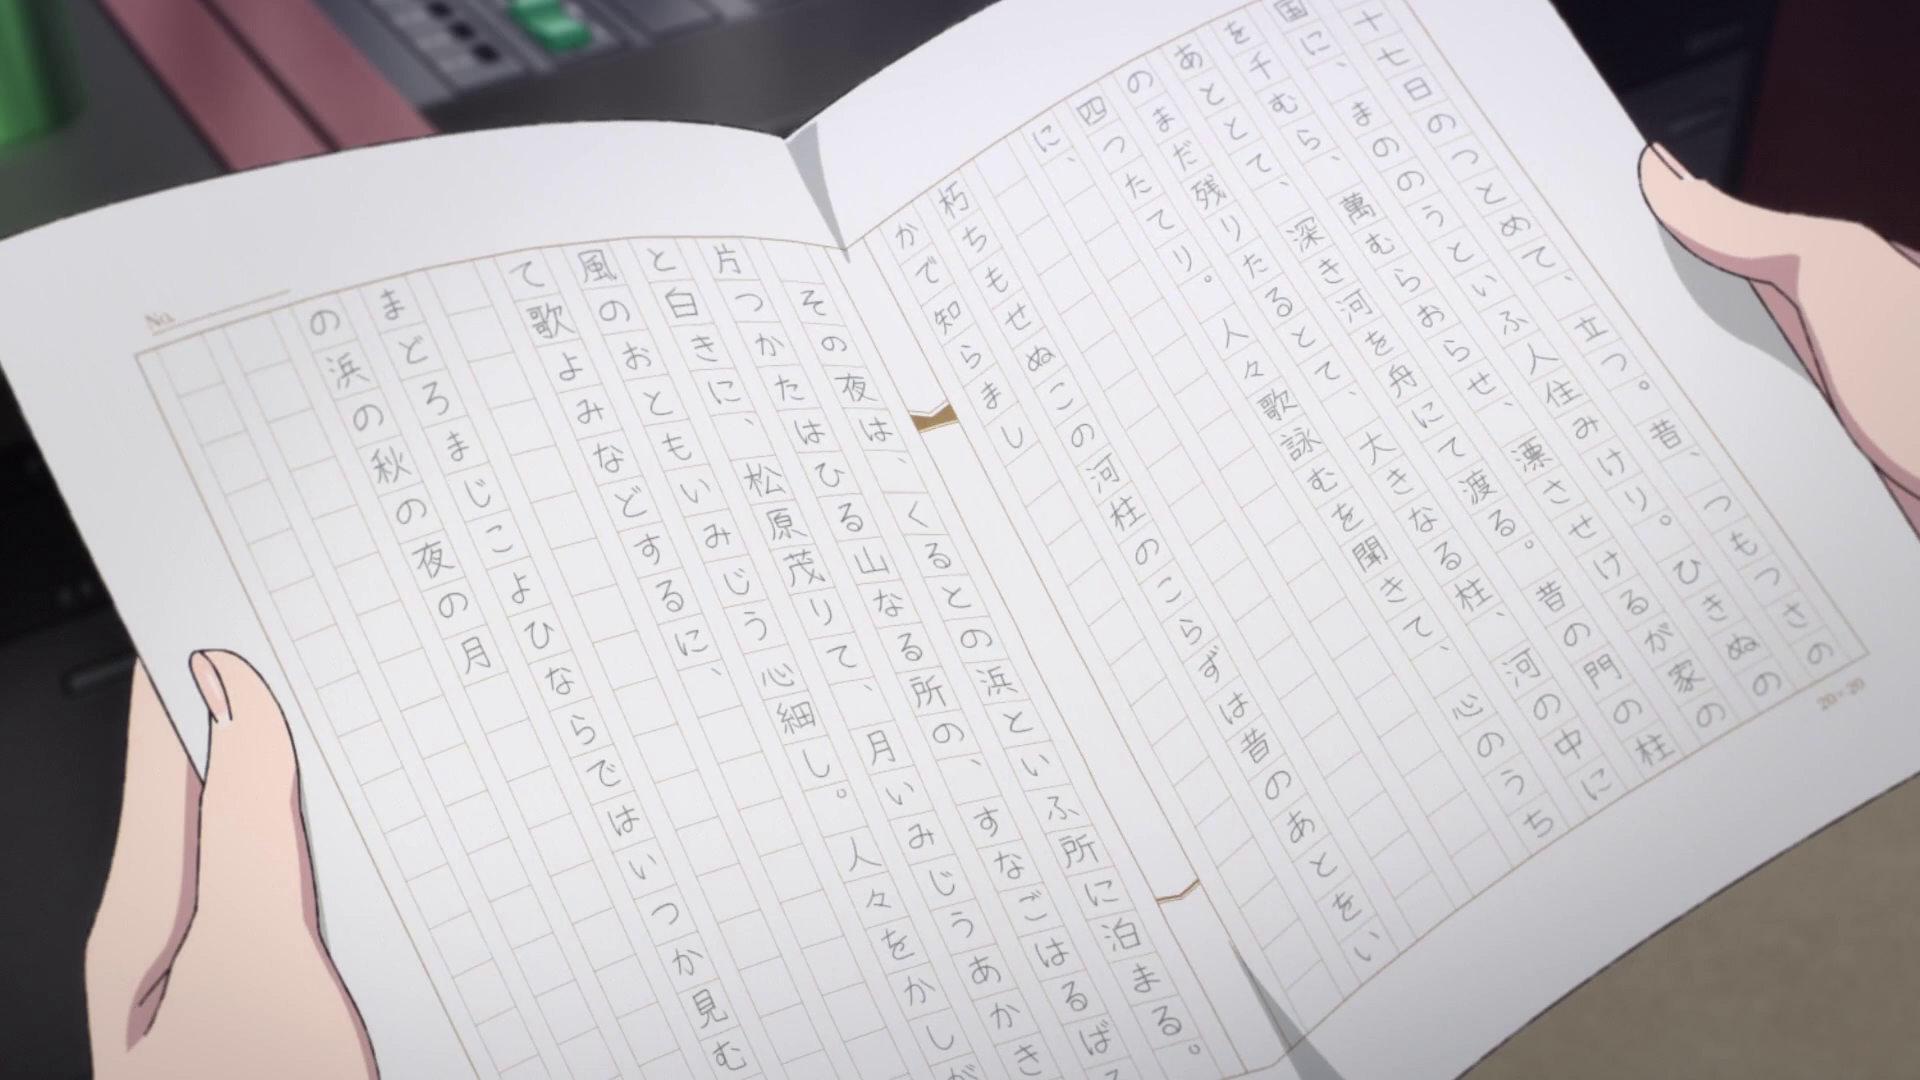 十七日のつとめて、立つ。昔、つもつさの
国に、まののうといふ人住みけり。ひきぬの
を千むら、萬むらおらせ、漂させけるが家の
あととて、深き河を舟にて渡る。昔の門の柱
のまだ残りたるとて、大きなる柱、河の中に
四つたてり。人々歌詠むを聞きて、心のうち
に、
朽ちもせぬこの河柱のこらずは昔のあとをい
かで知らまし
その夜は、くるとの浜といふ所に泊まる。
片つかたはひる山なる所の、すなごはるば
と白きに、松原茂りて、月いみじうあかき
風のおともいみじう心細し。人々をかしが
て歌よみなどするに、
まどろまじこよひならではいつか見む
の浜の秋の夜の月
No.
20×20